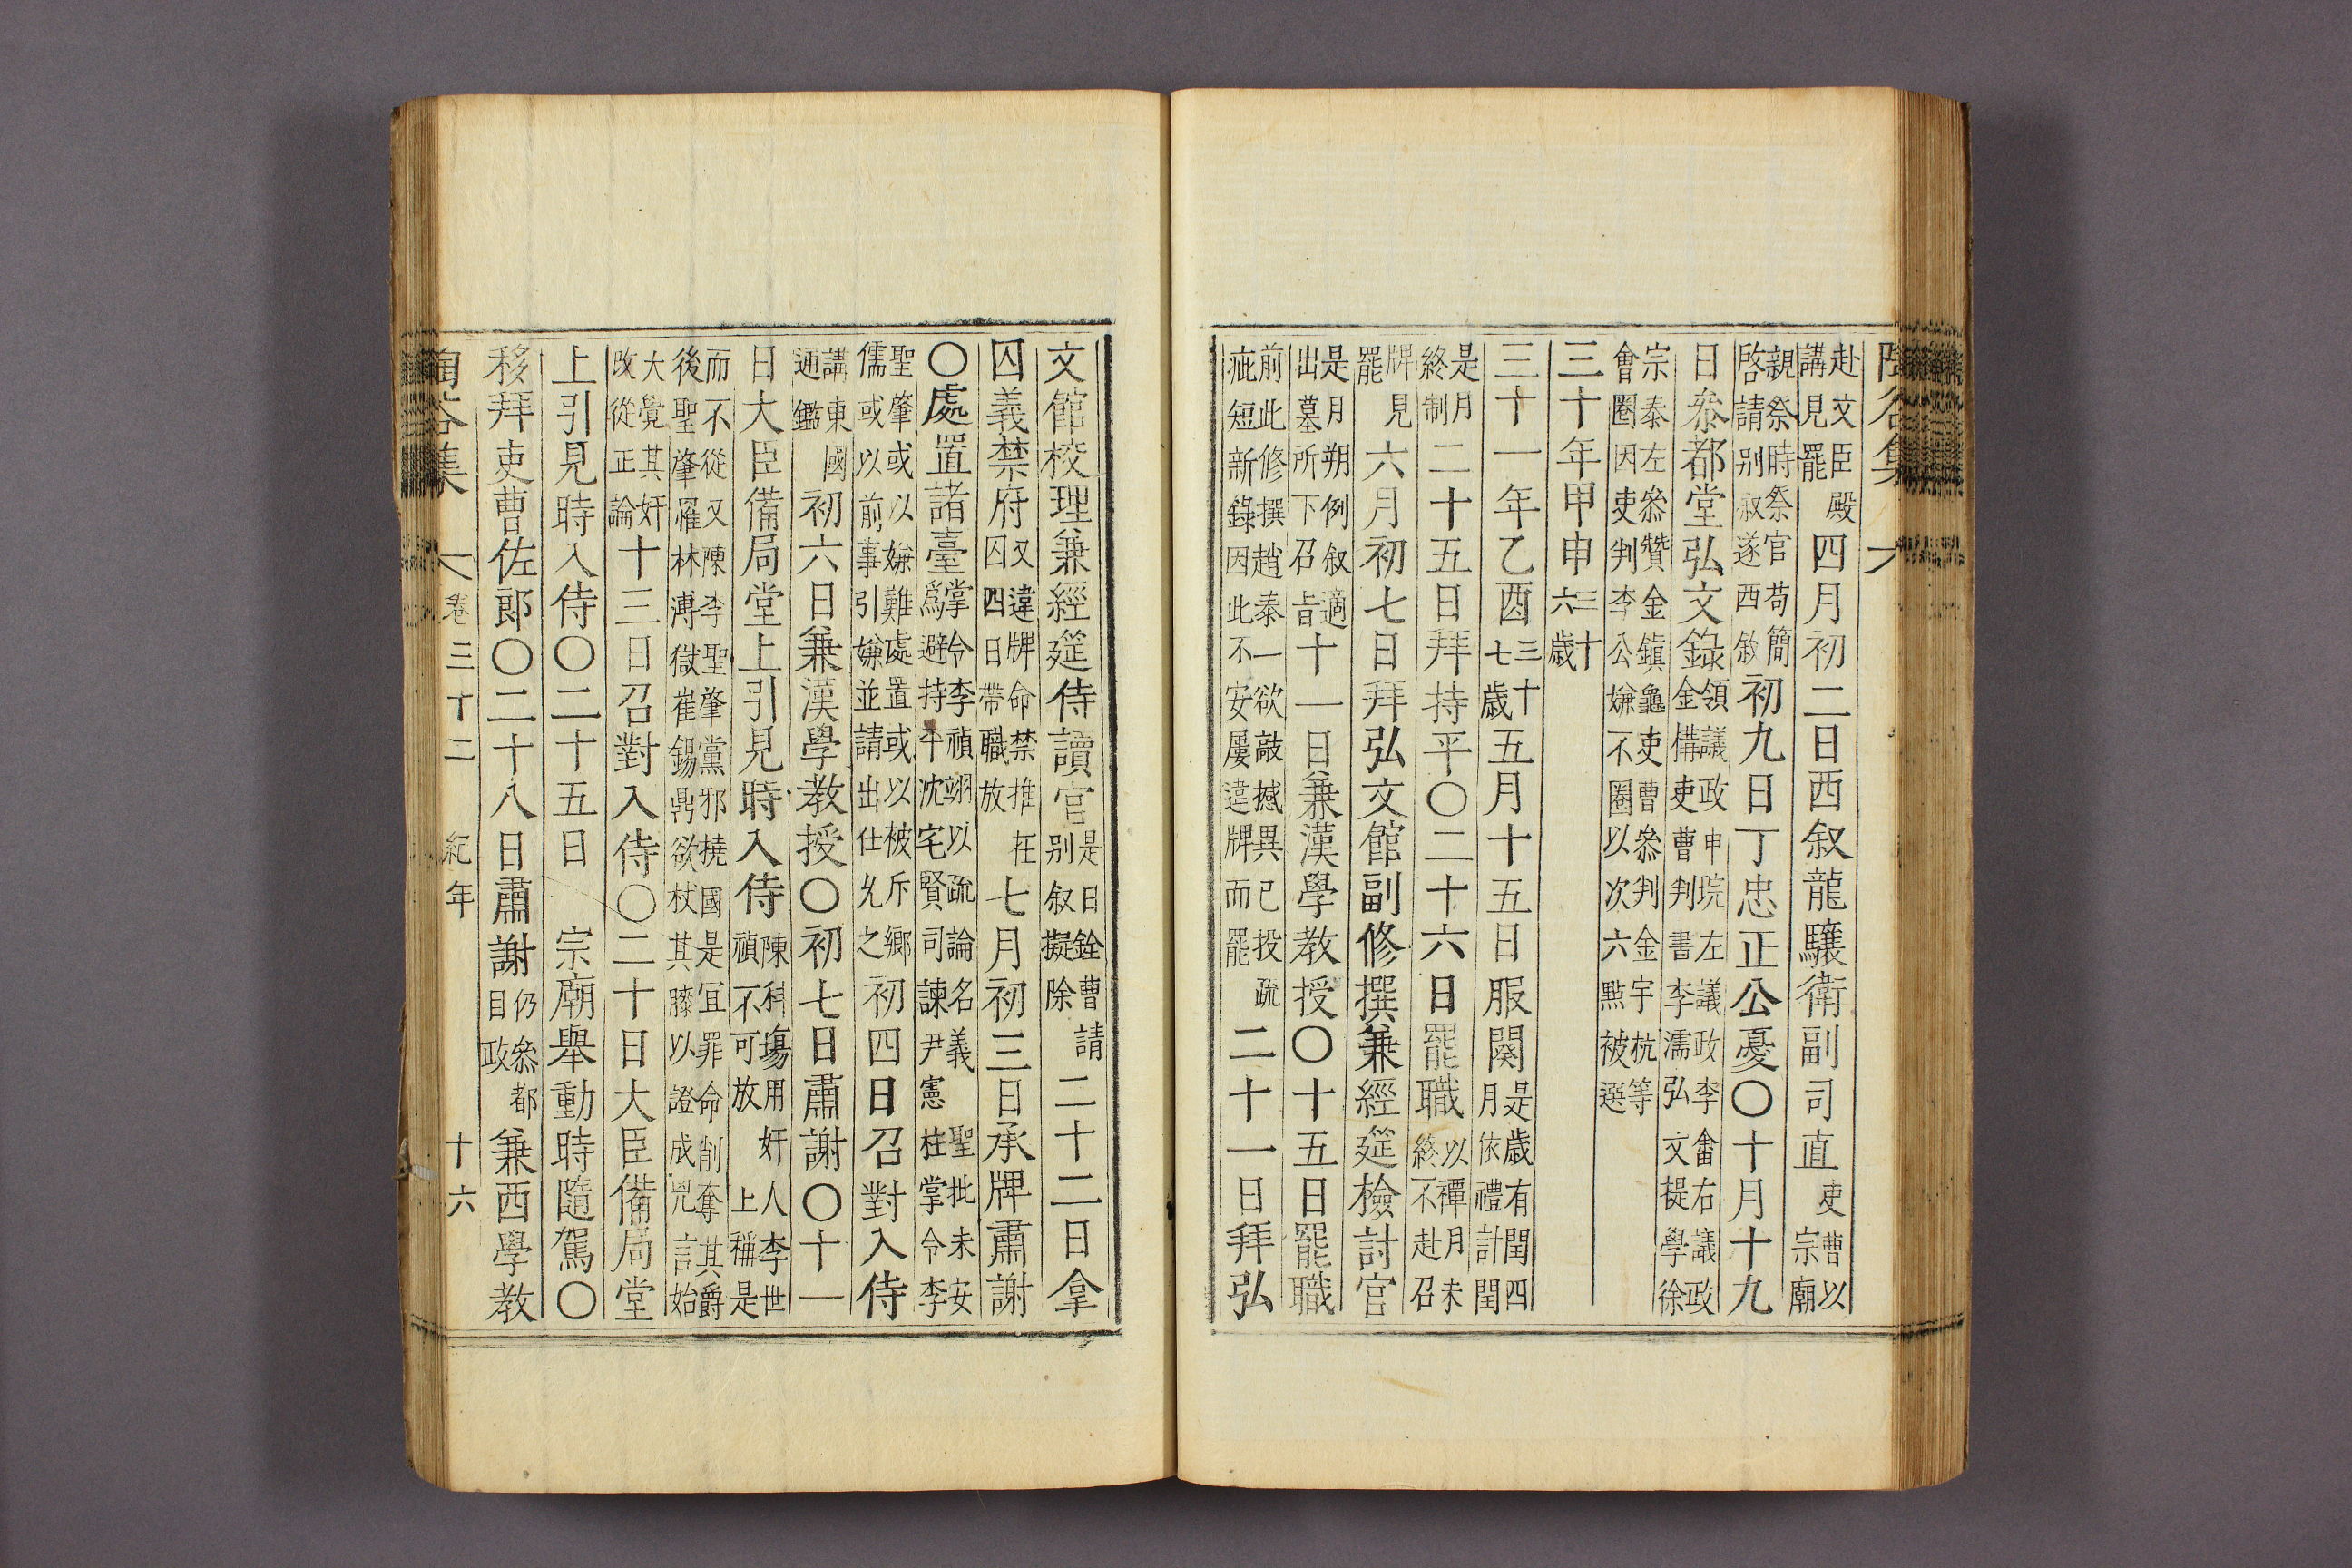 赴文臣殿
講見罷
四月初二日西叙龍驤衛副司直
吏曹以
宗廟
親祭時祭官苟簡
啓請别叙遂西敘
初九日丁忠正公憂〇十月十九
日叅都堂弘文錄
領議政申琓左議政李畬右議政
金構吏曹判書李濡弘文提學徐
宗泰左叅贊金鎭龜吏曹叅判金宇杭等
會圈因吏判李公嫌不圈以次六點被選
三十年甲申
三十
六歲
三十一年乙酉
三十
七歲
五月十五日服闋
是歲有閏四
月依禮計閏
是月
終制
二十五日拜持平〇二十六日罷職
以禫月未
終不赴召
牌見
罷
六月初七日拜弘文館副修撰兼經筵檢討官
是月朔例叙適
出墓所下召旨
十一日兼漢學教授〇十五日罷職
前此修撰趙泰一欲敲撼異已投疏
疵短新錄因此不安屢違牌而罷
二十一日拜弘
文館校理兼經筵侍讀官
是日銓曹請
别叙擬除
二十二日拿
囚義禁府
又違牌命禁推在
囚四日帶職放
七月初三日承牌肅謝
〇處置諸臺
掌令李禎翊以疏論名義聖批未安
爲避持平沈宅賢司諫尹憲柱掌令李
聖肇或以嫌難處置或以被斥鄉
儒或以前事引嫌並請出仕允之
初四日召對入侍
講東國
通鑑
初六日兼漢學教授〇初七日肅謝〇十一
日大臣備局堂上引見時入侍
陳科場用奸人李世
禎不可放上稱是
而不從又陳李聖肇黨邪撓國是宜罪命削奪其爵
後聖肇羅林溥獄崔錫鼎欲杖其滕以證成兇言始
大覺其奸
改從正論
十三日召對入侍〇二十日大臣備局堂
上引見時入侍〇二十五日 宗廟舉動時隨駕〇
移拜吏曹佐郎〇二十八日肅謝
仍叅都
目政
兼西學教
陶谷集 卷三十二 紀年 十六